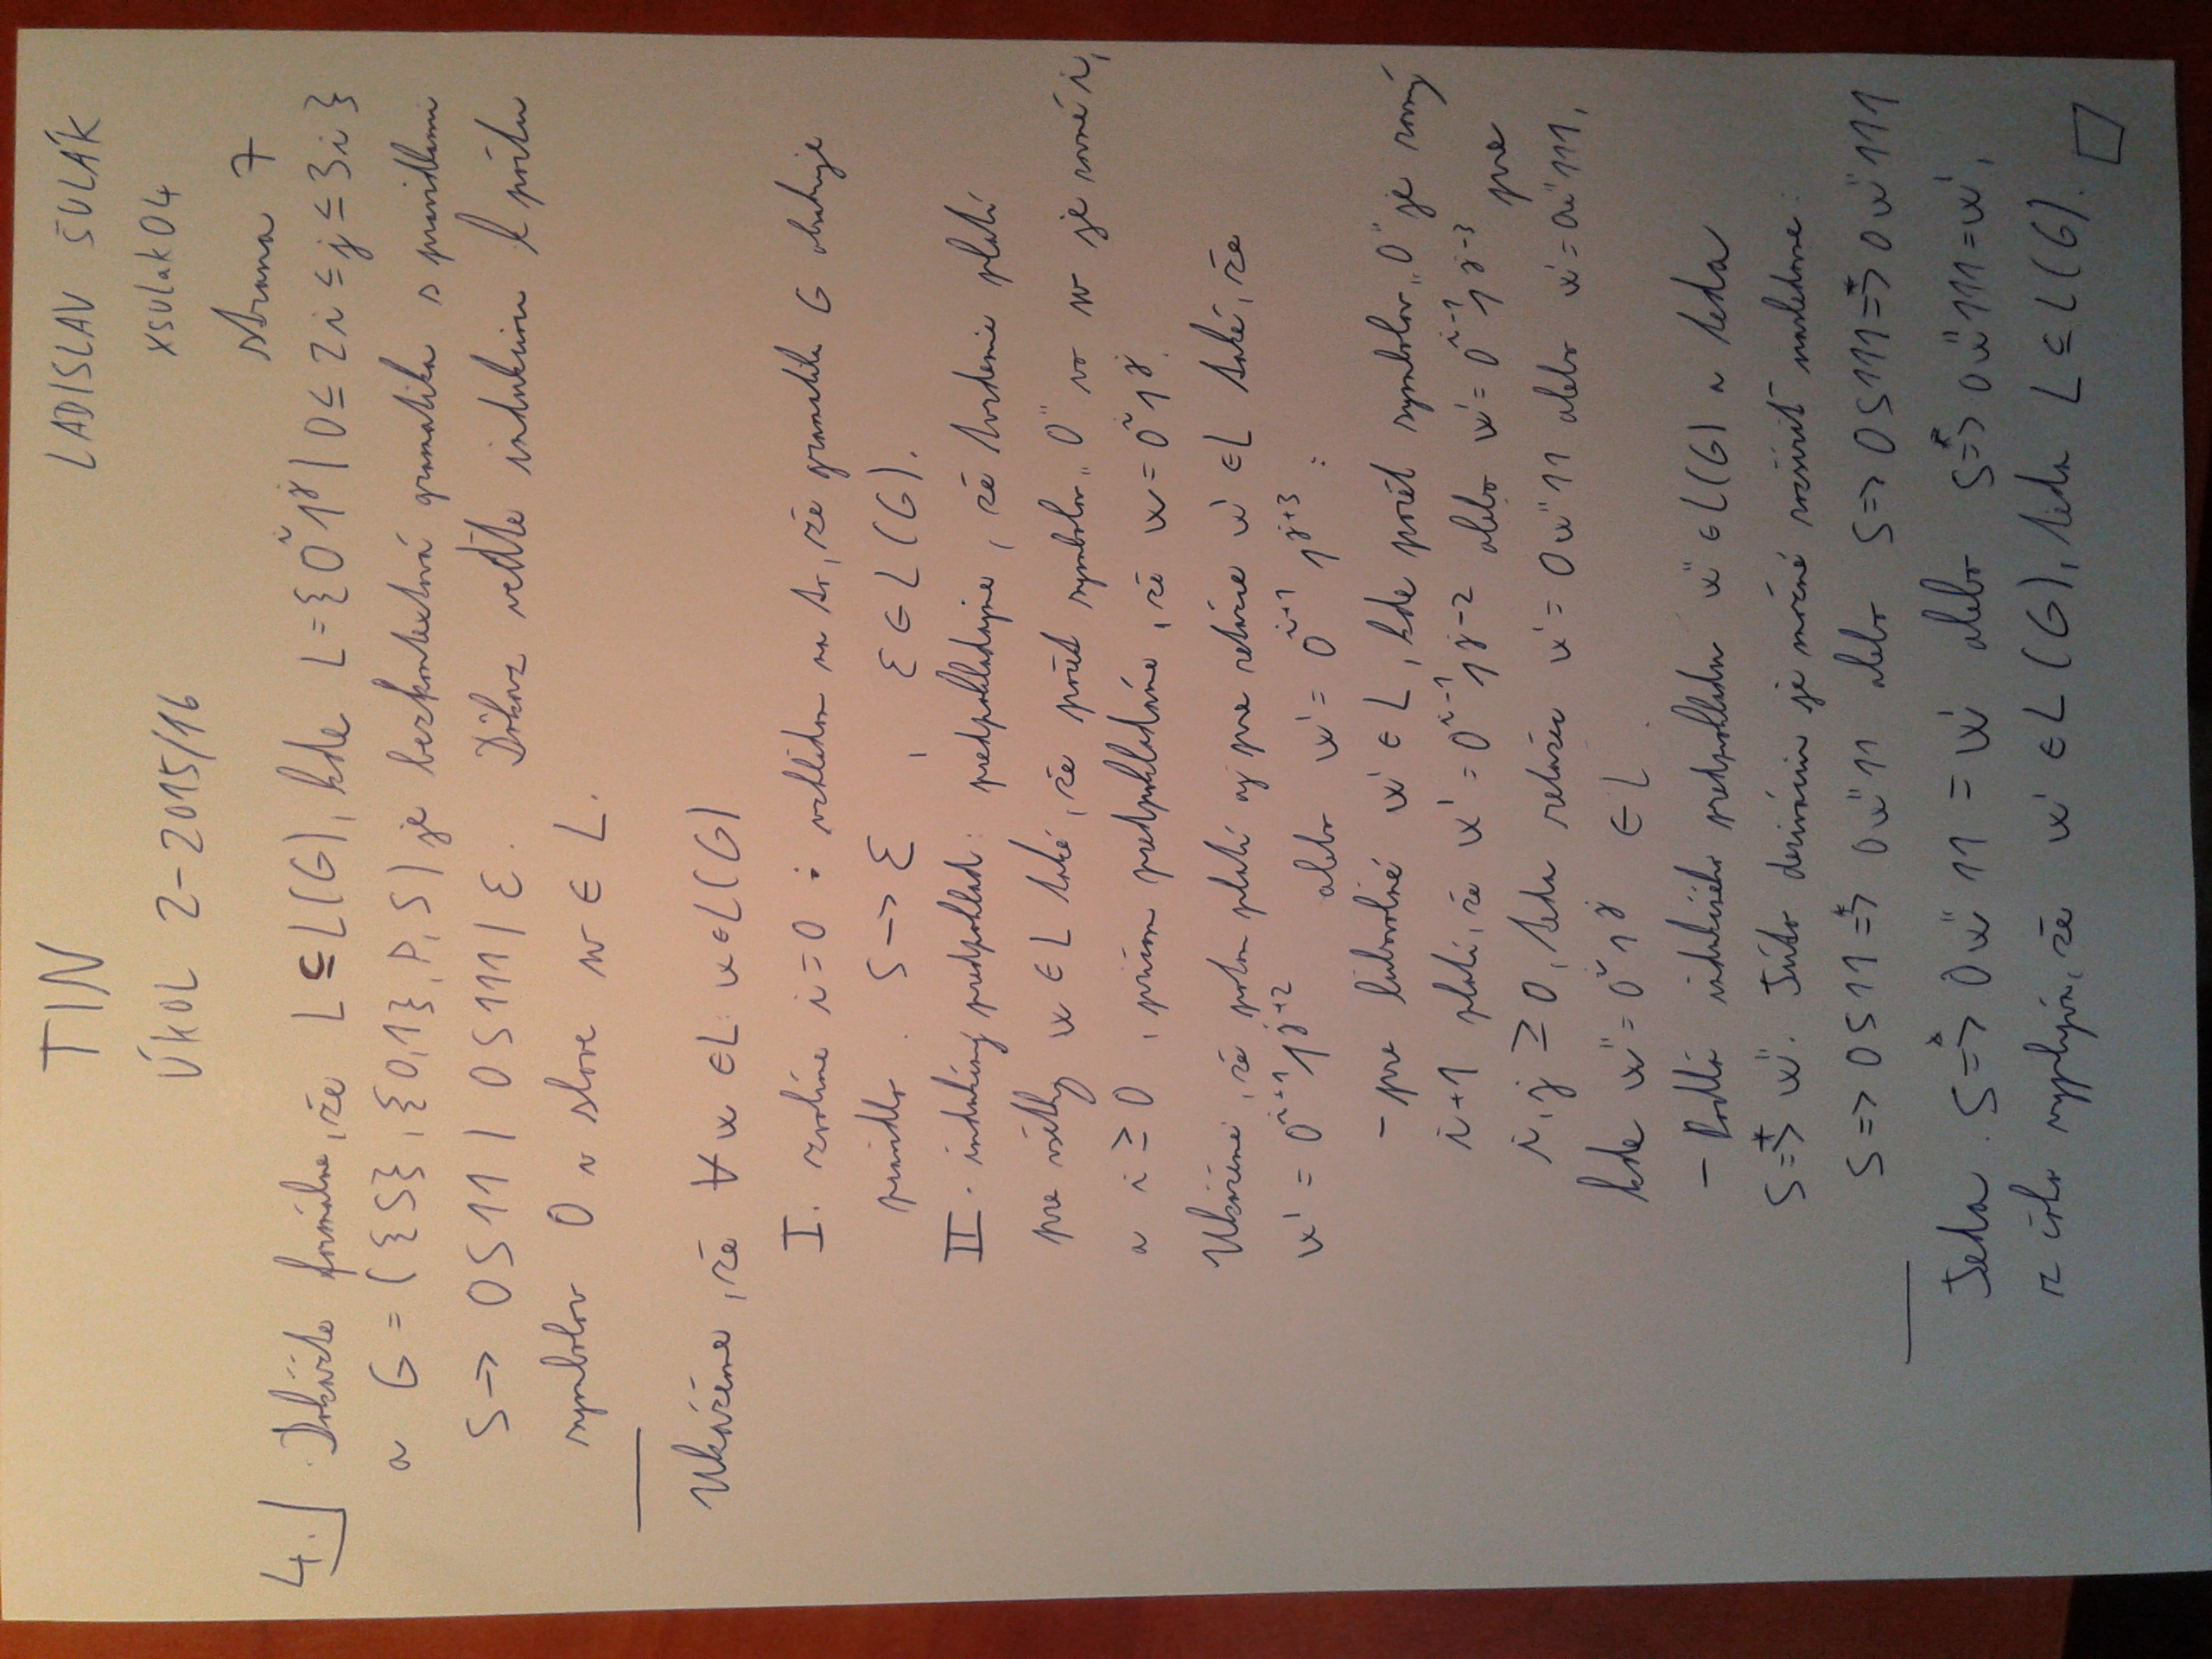 TIN
LADISLAV ŠULÁK
ÚKOL 2-2015/16
xsulak04
strana 7
4.) Dokážte formálne, že L ⊆ L(G), kde L = {0^i 1^j | 0 ≤ 2i ≤ j ≤ 3i}
a G = ({S}, {0,1}, P, S) je bezkontextová gramatika s pravidlami
S → 0S11 | 0S111 | ε. Dôkaz veďte indukciou k počtu
symbolov 0 v slove w ∈ L.
Ukážeme, že ∀ w ∈ L: w ∈ L(G)
I. zvolíme i = 0 : vzhľadom na to, že gramatika G obsahuje
pravidlo S → ε, ε ∈ L(G).
II. indukčný predpoklad: predpokladajme, že tvrdenie platí
pre všetky w ∈ L také, že počet symbolov „0" vo w je rovné i,
a i ≥ 0, pričom predpokladáme, že w = 0^i 1^j.
Ukážeme, že potom platí aj pre reťazce w' ∈ L také, že
w' = 0^{i+1} 1^{j+2} alebo w' = 0^{i+1} 1^{j+3} :
- pre ľubovoľné w' ∈ L, kde počet symbolov „0" je rovný
i+1 platí, že w' = 0^{i-1} 1^{j-2} alebo w' = 0^{i-1} 1^{j-3} pre
i, j ≥ 0, teda reťazec w' = 0w''11 alebo w' = 0w''111,
kde w'' = 0^i 1^j ∈ L.
- Podľa indukčného predpokladu w'' ∈ L(G) a teda
S ⇒* w''. Túto deriváciu je možné rozšíriť nasledovne:
S ⇒ 0S11 ⇒* 0w''11 alebo S ⇒ 0S111 ⇒* 0w''111
Teda S ⇒* 0w''11 = w' alebo S ⇒* 0w''111 = w',
z čoho vyplýva, že w' ∈ L(G), teda L ⊆ L(G). □